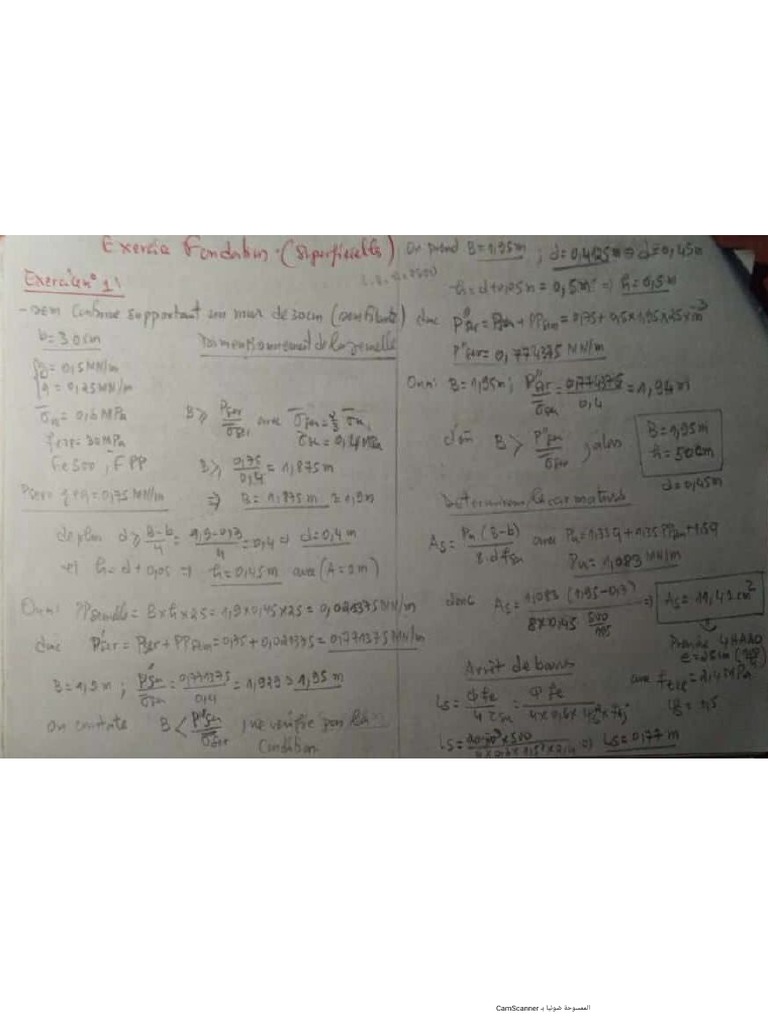 Exercice Fondations (superficielles)
Exercice n° 1 :
- Sem continue supportant un mur de 30 cm
b = 30 cm
Dimensionnement de la semelle
g = 0,5 MN/m
q = 0,25 MN/m
σ̄u = 0,6 MPa
fc28 = 30 MPa
Fe500 ; FPP
Pser = g + q = 0,75 MN/m
B ≥ Pser/σ̄ser avec σ̄ser = 2/3 σ̄u
σ̄ser = 0,4 MPa
B ≥ 0,75/0,4 = 1,875 m
⇒ B = 1,875 m ≃ 1,9 m
de plus d ≥ B-b/4 = 1,9-0,3/4 = 0,4 ⇒ d = 0,4 m
et h = d + 0,05 ⇒ h = 0,45 m avec (A = 0 m)
On a : PPsemelle = B×h×25 = 1,9×0,45×25 = 0,021375 MN/m
donc P'ser = Pser + PPsem = 0,75 + 0,021375 = 0,771375 MN/m
B = 1,9 m ; P'ser/σ̄ser = 0,771375/0,4 = 1,929 ≃ 1,95 m
on constate B < P'ser/σ̄ser ; ne vérifie pas la
Condition
On prend B = 1,95 m ; d = 0,4125 m ⇒ d = 0,45 m
h = d + 0,05 m = 0,5 m ⇒ h = 0,5 m
donc P''ser = Pser + PPsem = 0,75 + 0,5×1,95×25×10⁻³
P''ser = 0,774375 MN/m
On a : B = 1,95 m ; P''ser/σ̄ser = 0,774375/0,4 = 1,94 m
d'où B > P''ser/σ̄ser ; alors
B = 1,95 m
h = 50 cm
d = 0,45 m
Determinons les armatures
As = Pu (B-b)/8.d.fsu avec Pu = 1,35g + 1,35 PPsem + 1,5q
Pu = 1,083 MN/m
donc As = 1,083 (1,95-0,3)/8×0,45 500/1,15 ⇒ As = 11,41 cm²
Prendre 4HA20
Arrêt de barres
ls = Φ fe/4 τsu = Φ fe/4×0,6×
avec
ls = 500 ⇒ ls = 0,77 m
CamScanner الممسوحة ضوئيا بـ